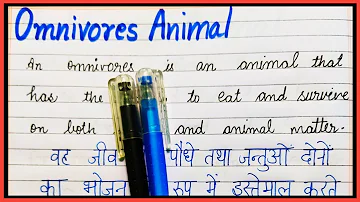 Omnivores Animal
An omnivores is an animal that
has the to eat and survive
on both and animal matter.
वह जीव पौधे तथा जन्तुओं दोनों
का भोजन रूप में इस्तेमाल करते